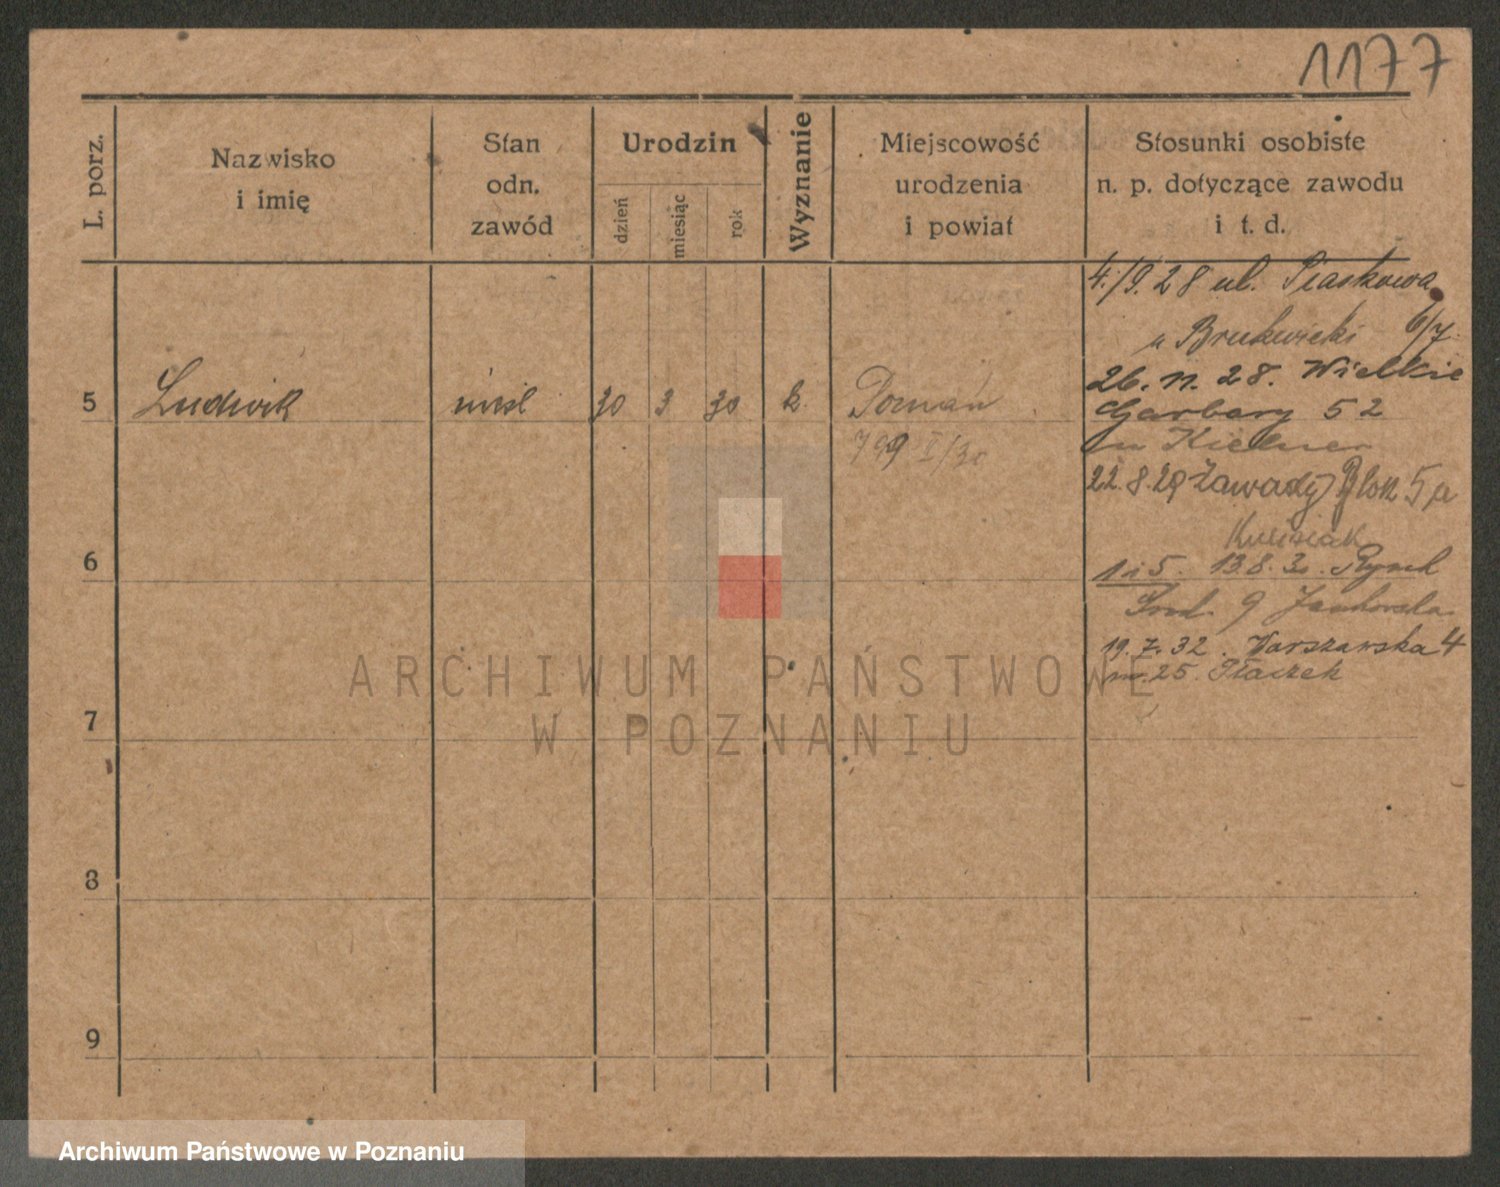 1177
L. porz.
Nazwisko
i imię
Stan
odn.
zawód
Urodzin
dzień
miesiąc
rok
Wyznanie
Miejscowość
urodzenia
i powiat
Stosunki osobiste
n. p. dotyczące zawodu
i t. d.
4./9. 28 ul. Piaskowa
6/7
26. 11. 28. Wielkie
5 Ludwik 30 3 30 k. Poznań
Garbary 52
799 I/30
22. 8. 29 Zawady Blok 5 u
Kubisiak
6
1 i 5. 13.8.30. Rynek
Śród. 9 Jankowska
19. 7. 32. Warszawska 4
m. 25. Ptaszek
7
8
9
ARCHIWUM PAŃSTWOWE
W POZNANIU
Archiwum Państwowe w Poznaniu